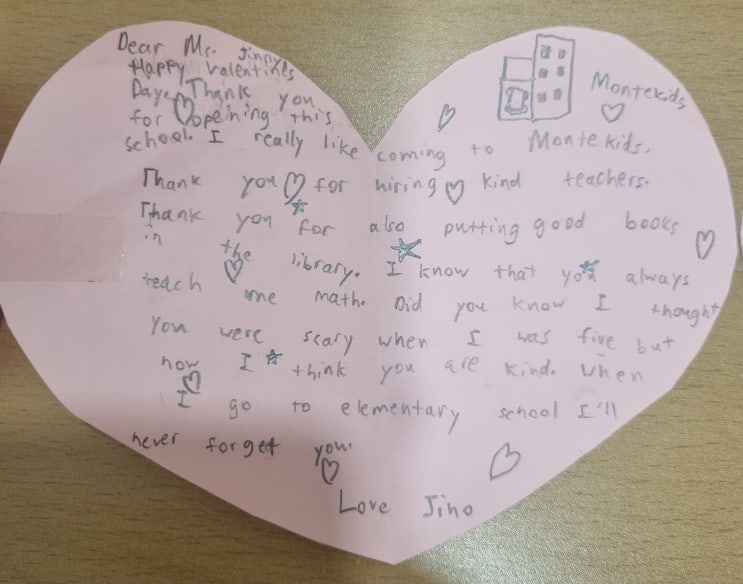 Dear Ms. Jinny,
Happy Valentines
Day. Thank you
for opening this
school. I really like coming to Montekids.
Montekids
Thank you for hiring kind teachers.
Thank you for also putting good books
in the library. I know that you always
teach me math. Did you know I thought
you were scary when I was five but
now I think you are kind. When
I go to elementary school I'll
never forget you.
Love Jino